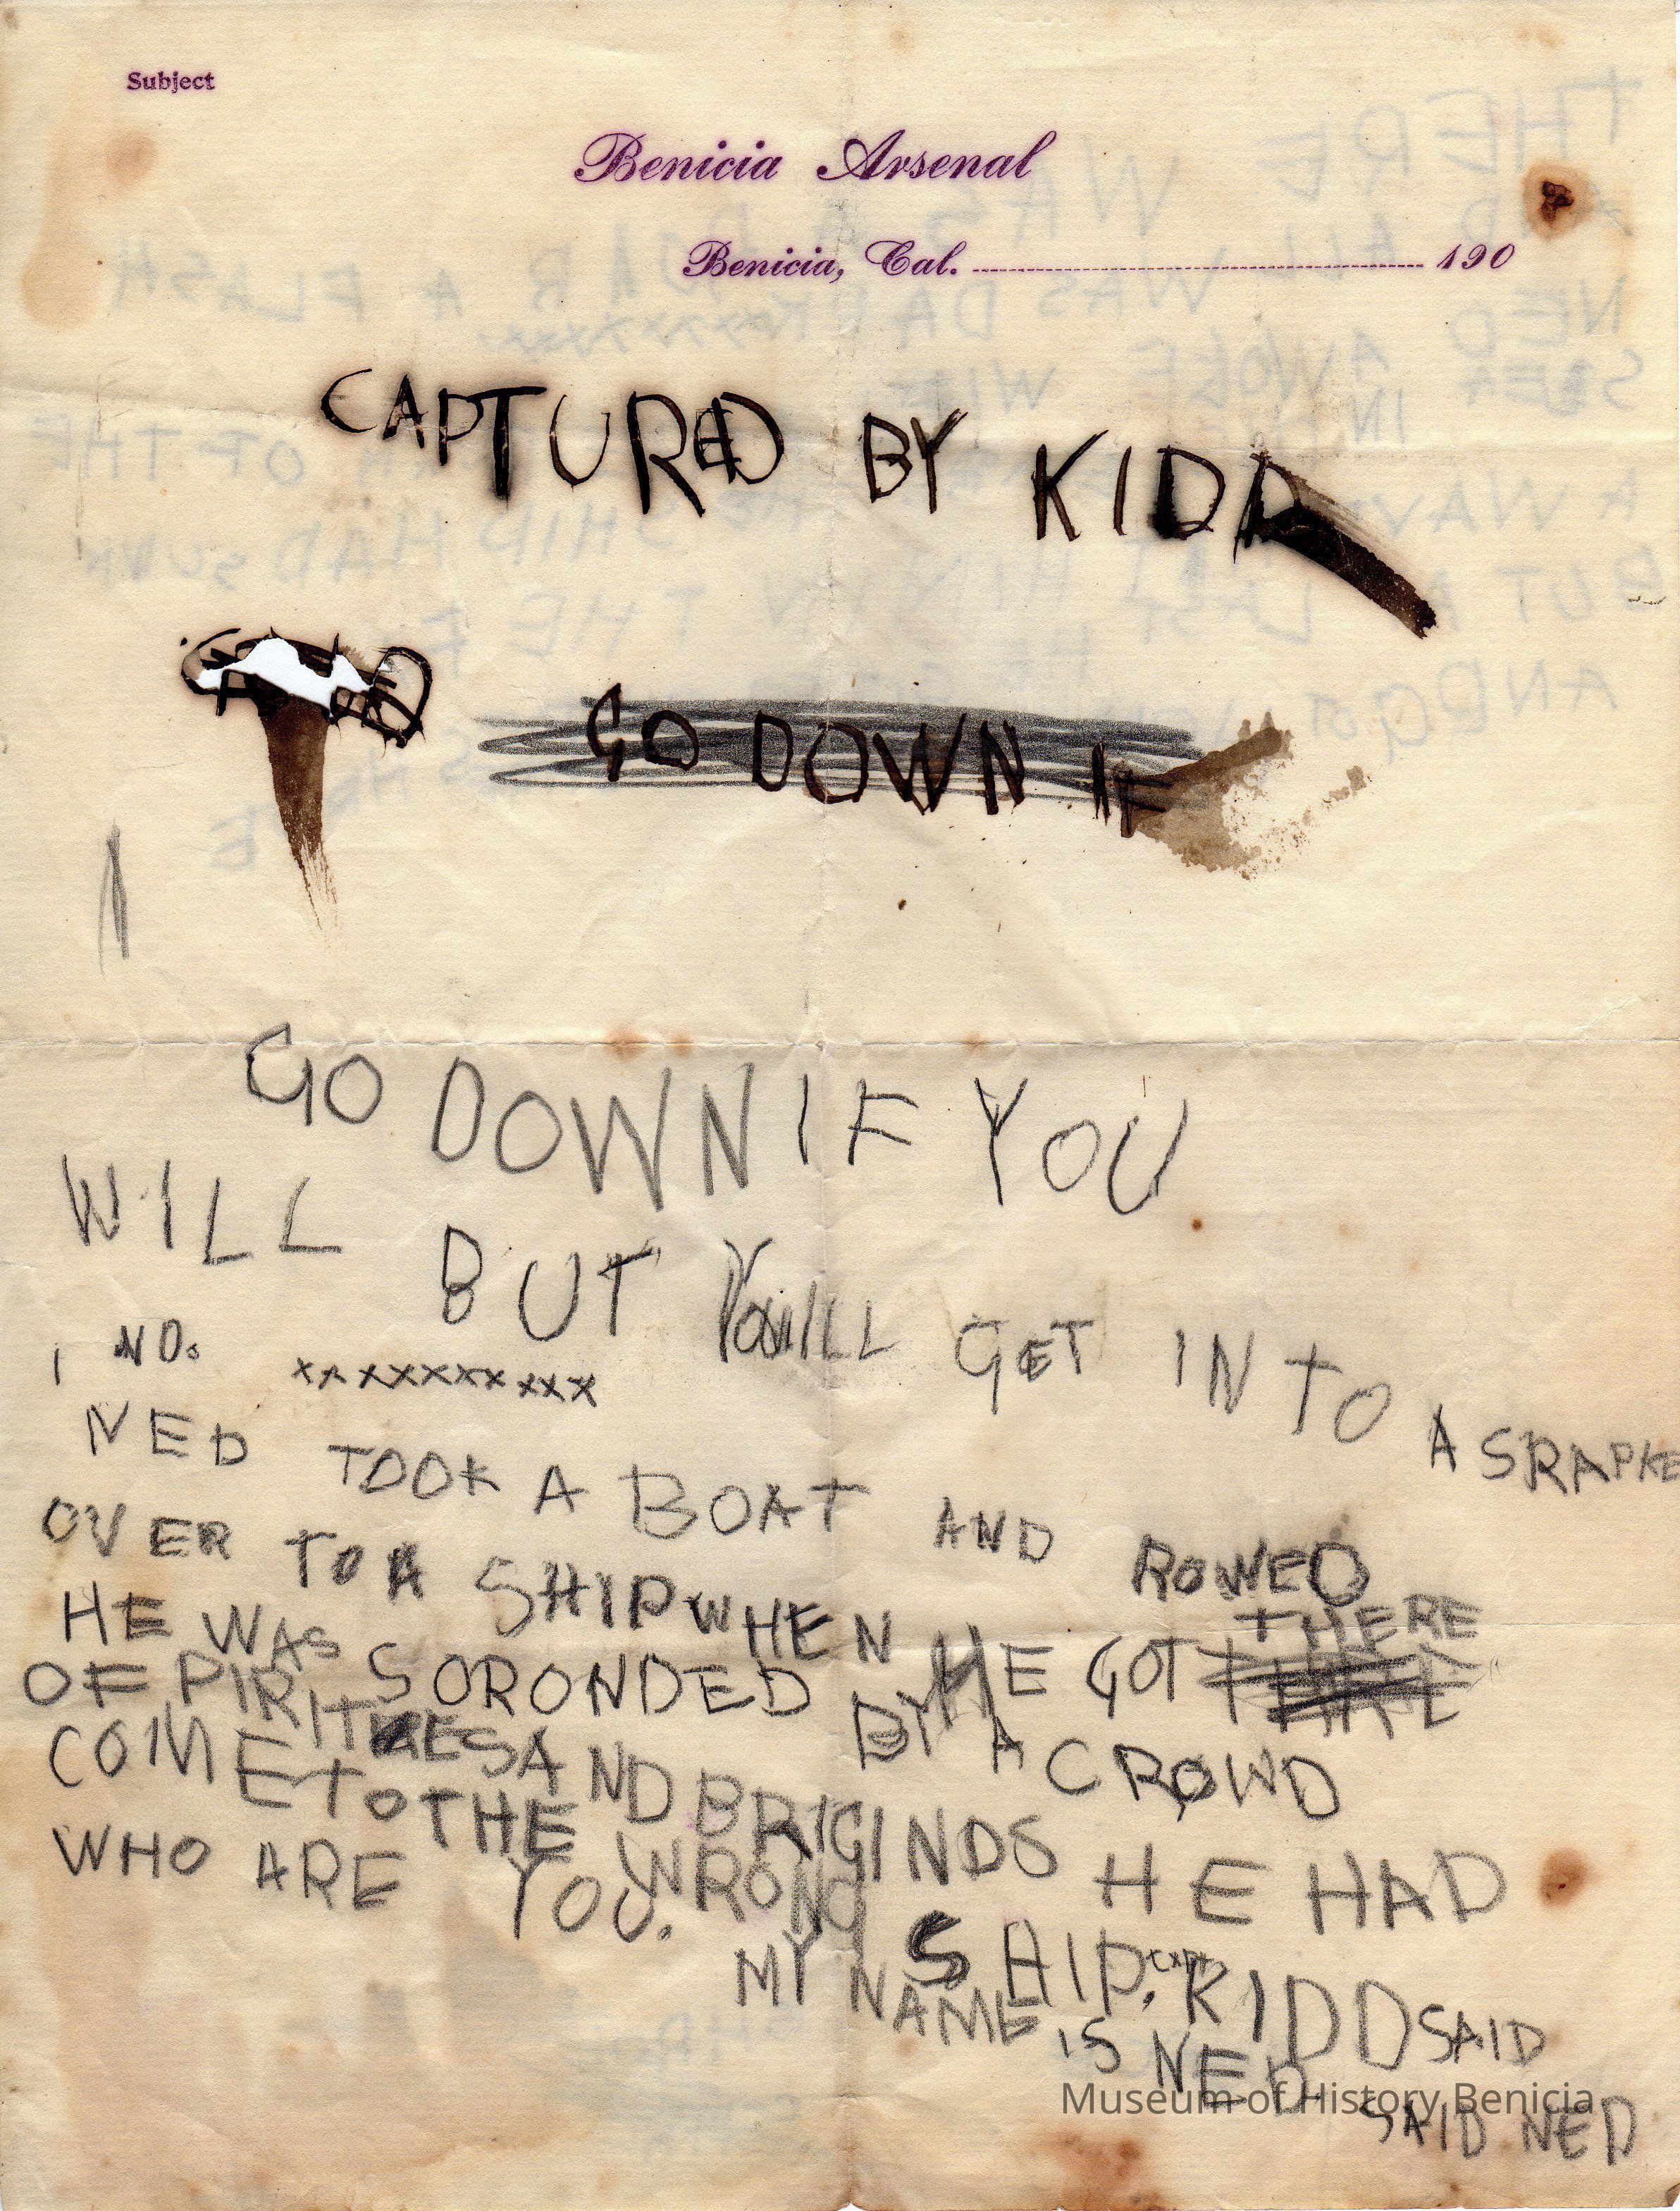 Subject
Benicia Arsenal
Benicia, Cal. 190
CAPTURED BY KIDD
GO DOWN IF
GO DOWN IF YOU
WILL BUT YOU WILL GET INTO A SRAPKE
I NO. xxxxxxxxxxx
NED TOOK A BOAT AND ROWED
OVER TO A SHIP WHEN HE GOT THERE
HE WAS SORONDED BY A CROWD
OF PIRITES AND BRIGINDS HE HAD
COME TO THE WRONG SHIP. CAPT KIDD SAID
WHO ARE YOU. MY NAME IS NED SAID NED
Museum of History Benicia